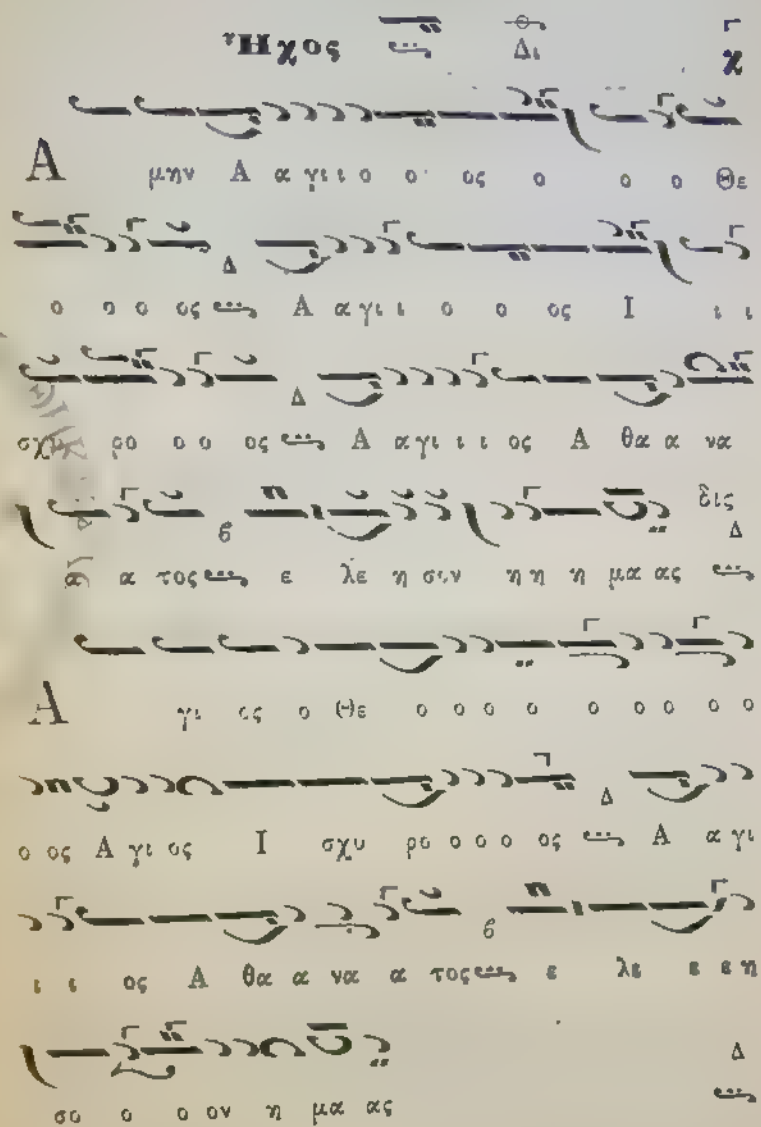 Ἦχος Δι χ
Α μην Α α γι ι ο ο ος ο ο ο Θε
ο ο ο ος Δ Α α γι ι ο ο ος Ι ι ι
σχυ ρο ο ο ος Δ Α α γι ι ι ος Α θα α να
α α τος β ε λε η σον η η η μα ας δις Δ
Α γι ος ο Θε ο ο ο ο ο ο ο ο ο
ο ος Α γι ος Ι σχυ ρο ο ο ο ος Δ Α α γι
ι ι ος Α θα α να α τος β ε λε ε ε η
σο ο ο ον η μα ας Δ